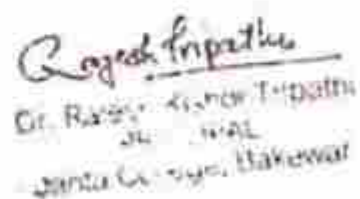 Rajesh Tripathi
Dr. Rajesh Kishor Tripathi
Janta College, Bakewar